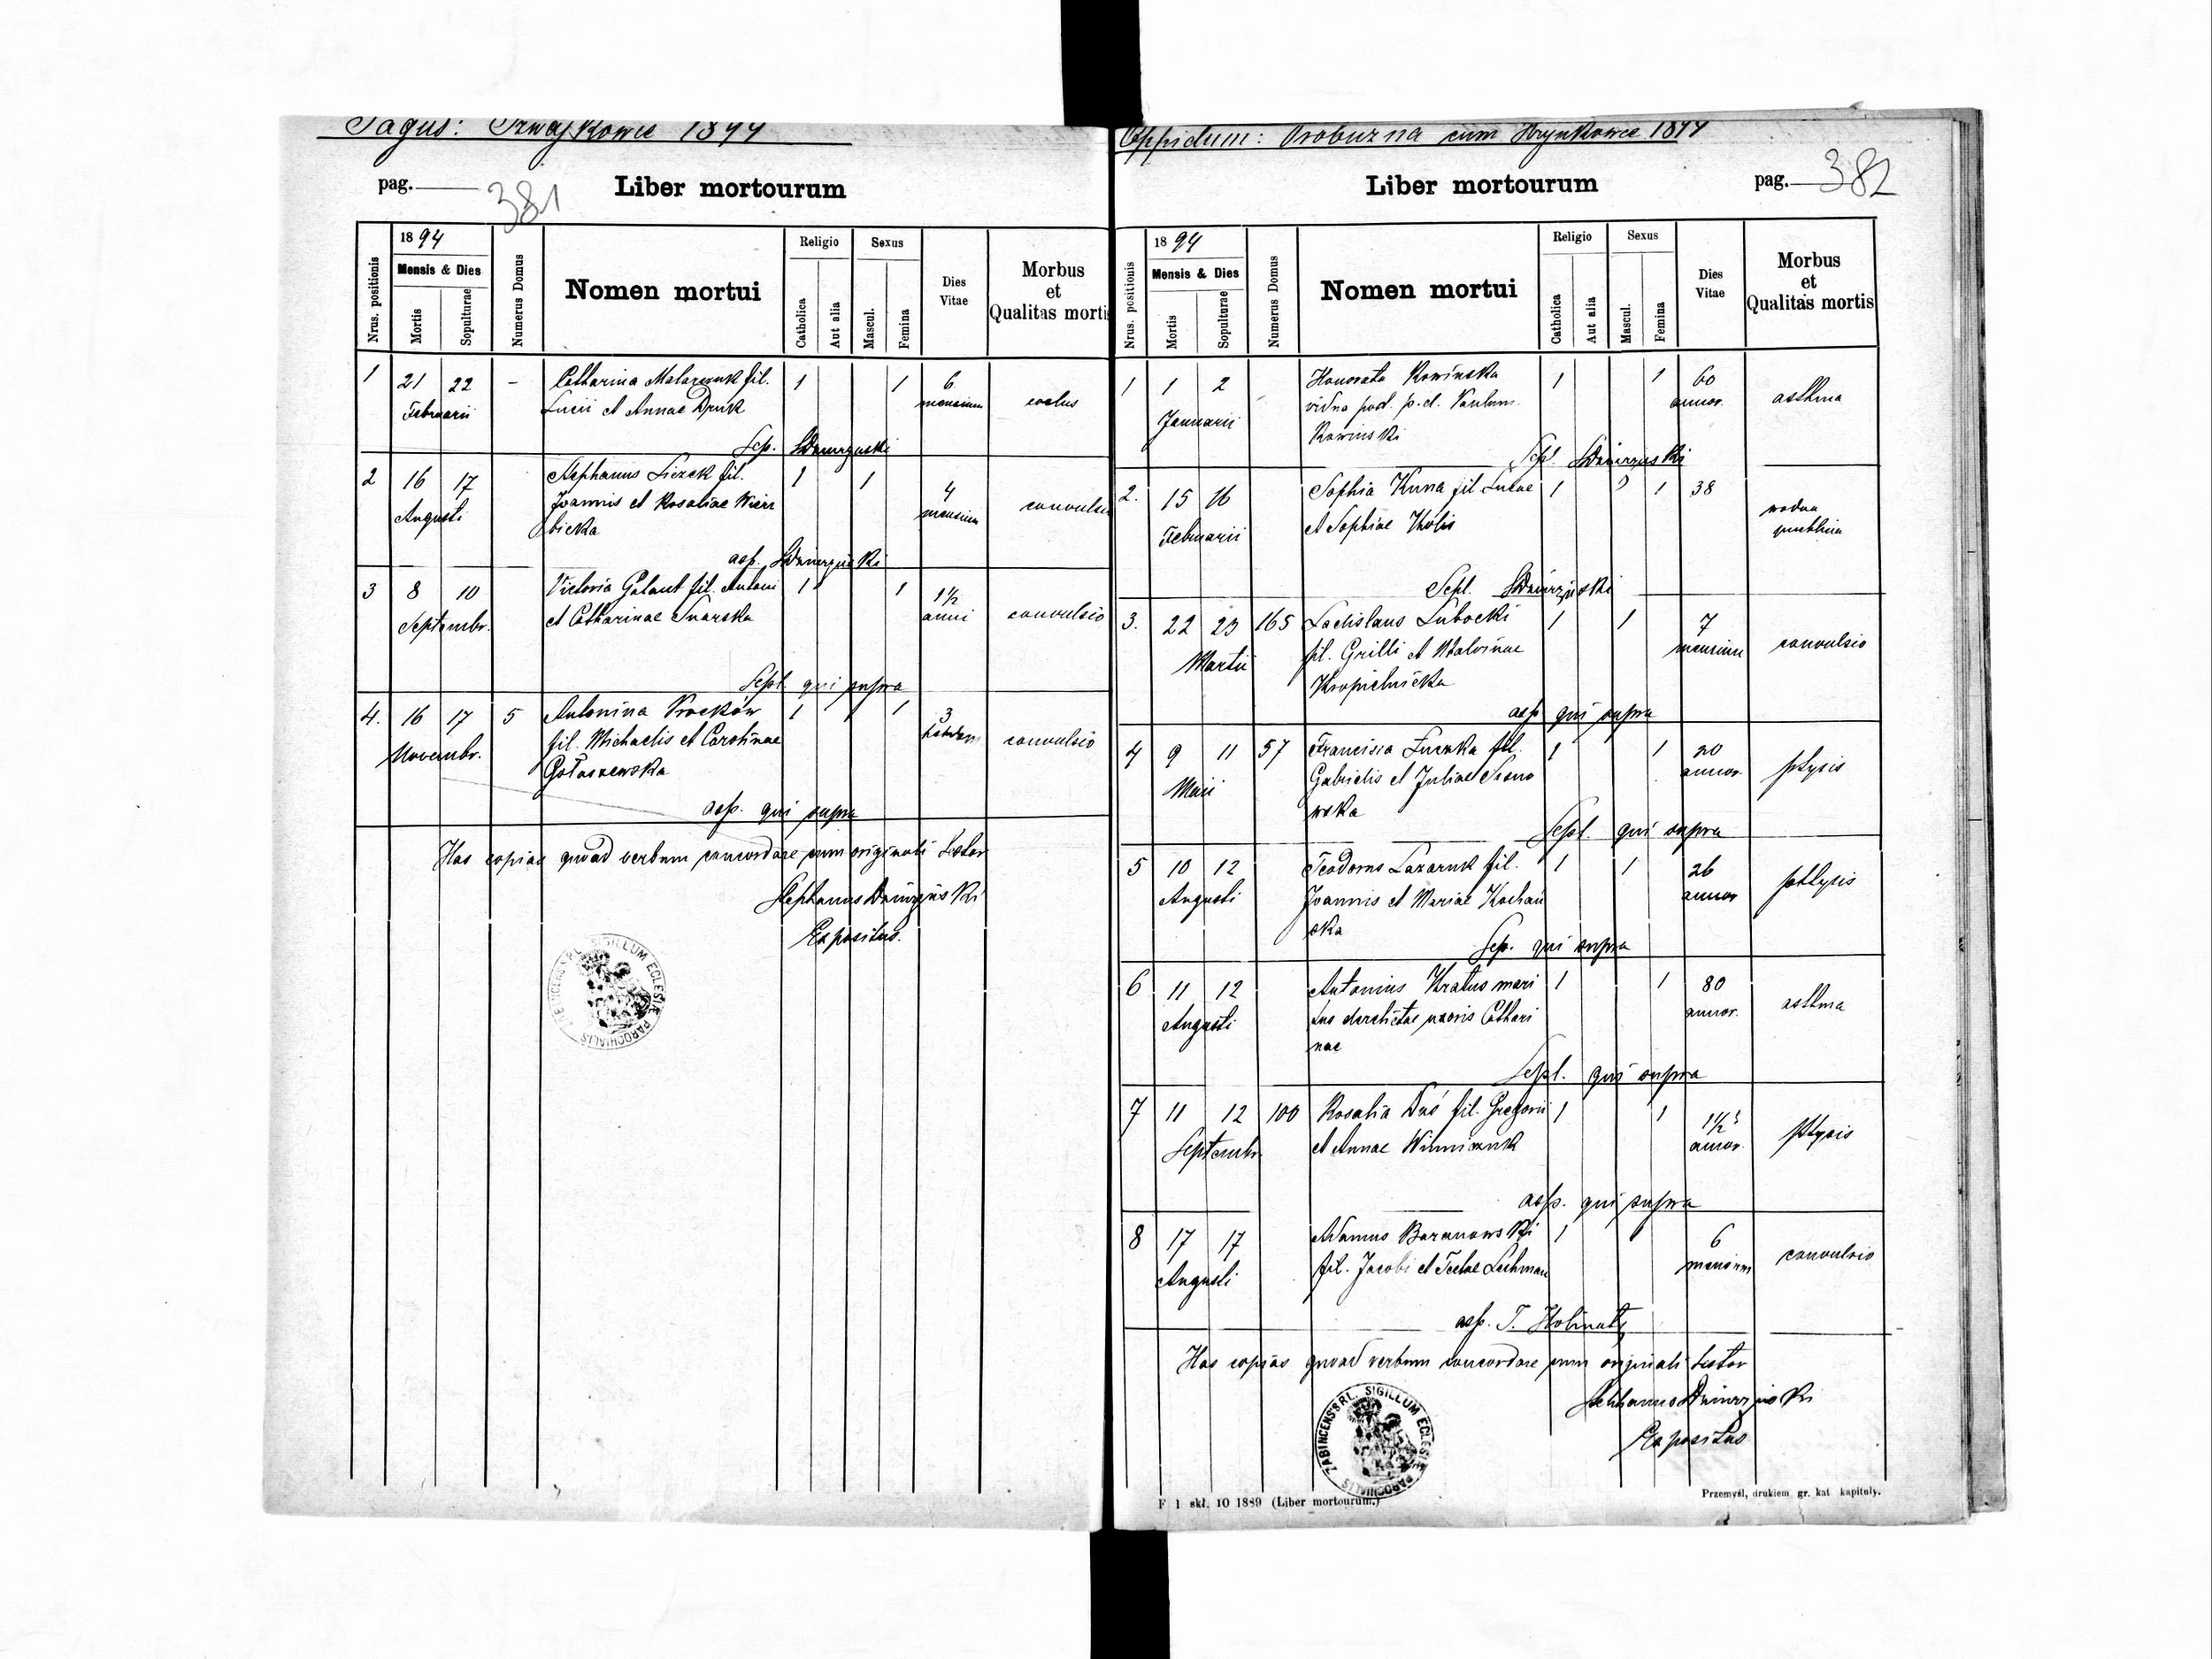 Pagus: Trwajkowce 1894
pag. 381
Liber mortourum
Nrus. positionis
1894
Mensis & Dies
Mortis
Sepulturae
Numerus Domus
Nomen mortui
Religio
Catholica
Aut alia
Sexus
Mascul.
Femina
Dies Vitae
Morbus
et
Qualitas mortis
1 21 22 - Catharina Malarczuk fil. 1 1 6
Februarii Lucii et Annae Druk mensium
Sep. SDwurzyński
2 16 17 Stephanus Liczek fil. 1 1 4
Augusti Joannis et Rosaliae Wierz mensium convulsio
bicka
asp. SDwurzyński
3 8 10 Victoria Galant fil. Antoni 1 1 1½
Septembr. et Catharinae anni convulsio
Sepl. qui supra
4. 16 17 5 Antonina Krocków 1 1 3
Novembr. fil. Michaelis et Carolinae convulsio
Gołaszewska
asp. qui supra
Has copias quoad verbum concordare cum originali testor
Stephanus Dwurzyński
Expositus.
SIGILLUM ECLESIÆ PAROCHIALIS
Oppidum: Probuzna cum Hrynkowce 1894
Liber mortourum
pag. 382
Nrus. positionis
1894
Mensis & Dies
Mortis
Sepulturae
Numerus Domus
Nomen mortui
Religio
Catholica
Aut alia
Sexus
Mascul.
Femina
Dies Vitae
Morbus
et
Qualitas mortis
1 1 2 Honorata Rowińska 1 1 60
Januarii vidua post. p.d. Paulum annor. asthma
Rowinski
Sepl. SDwurzyński
2. 15 16 Sophia Kuna fil. Lucae 1 1 38
Februarii et Sophiae Kholis
Sepl. SDwurzyński
3. 22 23 165 Ladislaus Lubocki 1 1 7
Martii fil. Grilli et Malvinae mensium convulsio
Kropielnicka
asp qui supra
4 9 11 57 Francisca fil. 1 1 20
Maii Gabrielis et Juliae Sosno annor. ptysis
wska
Sepl. qui supra
5 10 12 Teodorus Lazaruk fil. 1 1 26
Augusti Joannis et Mariae Kochań annor pthysis
ska
Sep. qui supra
6 11 12 Antonius Kratus mari 1 1 80
Augusti tus derelictae uxoris Cathari annor. asthma
nae
Sepl. qui supra
7 11 12 100 Rosalia Duś fil. Gregorii 1 1 1½
Septembr et Annae Winniczuk annor. ptysis
asp. qui supra
8 17 17 Adamus Baranowski 1 1 6
Augusti fil. Jacobi et Teclae Lechman mensium convulsio
asp. T. Holinaty
Has copias quoad verbum concordare cum originali testor
Stephanus Dwurzyński
Expositus
ZABINCENSIS R.L. SIGILLUM ECLESIÆ PAROCHIALIS
F 1 skł. 10 1889 (Liber mortourum.)
Przemyśl, drukiem gr. kat kapituły.